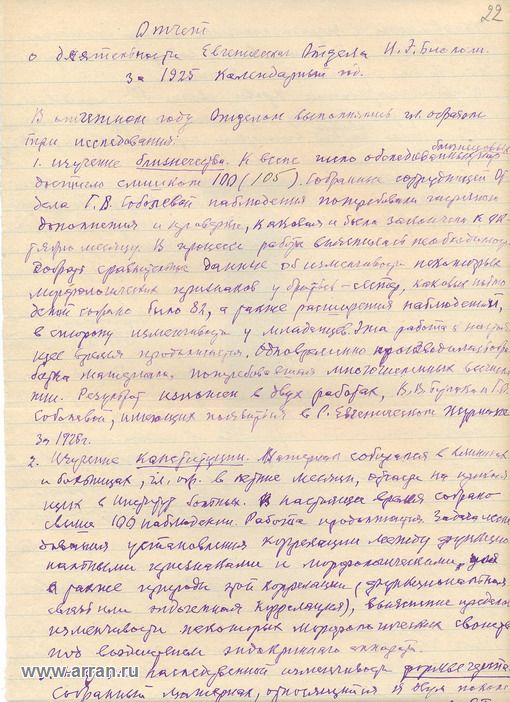 22
Отчет
о деятельности Евгенического Отдела И. Э. Биологи.
за 1925 календарный год.
В отчетном году Отделом выполнялись гл. образом
три исследования:
1. изучение близнечества. К весне число обследованных близнецовых пар
достигло слишком 100 (105). Собранные сотрудницей От
дела Г. В. Соболевой наблюдения потребовали
дополнения и проверки, каковая и была закончена к
месяцу. В процессе работы выяснилась необходимость
сравнительных данных об изменчивости некоторых
морфологических признаков у братьев-сестер, каковых наблю
дений собрано было 82, а также расширения наблюдений,
в сторону изменчивости у младенцев. Эта работа в настоя
щее время продолжается. Одновременно производилась обра
ботка материала, потребовавшая многочисленных вычисле
ний. Результат изложен в двух работах, В. В. Бунака и Г. В.
Соболевой, имеющих появиться в Р. Евгеническом Журнале
за 1926 г.
2. Изучение конституции. Материал собирался в клиниках
и больницах, гл. обр. в летние месяцы, отчасти на
щих в Институт больных. В настоящее время собрано
свыше 100 наблюдений. Работа продолжается. Задача иссле
дования установления корреляции между функцио
нальными признаками и морфологическими,
а также природы этой корреляции (функциональная
связь или эндогенная корреляция), выяснение предела
изменчивости некоторых морфологических свойств
под воздействием эндокринного аппарата.
наследственной изменчивости формы черепа
Собранный материал, относящийся к двум
www.arran.ru